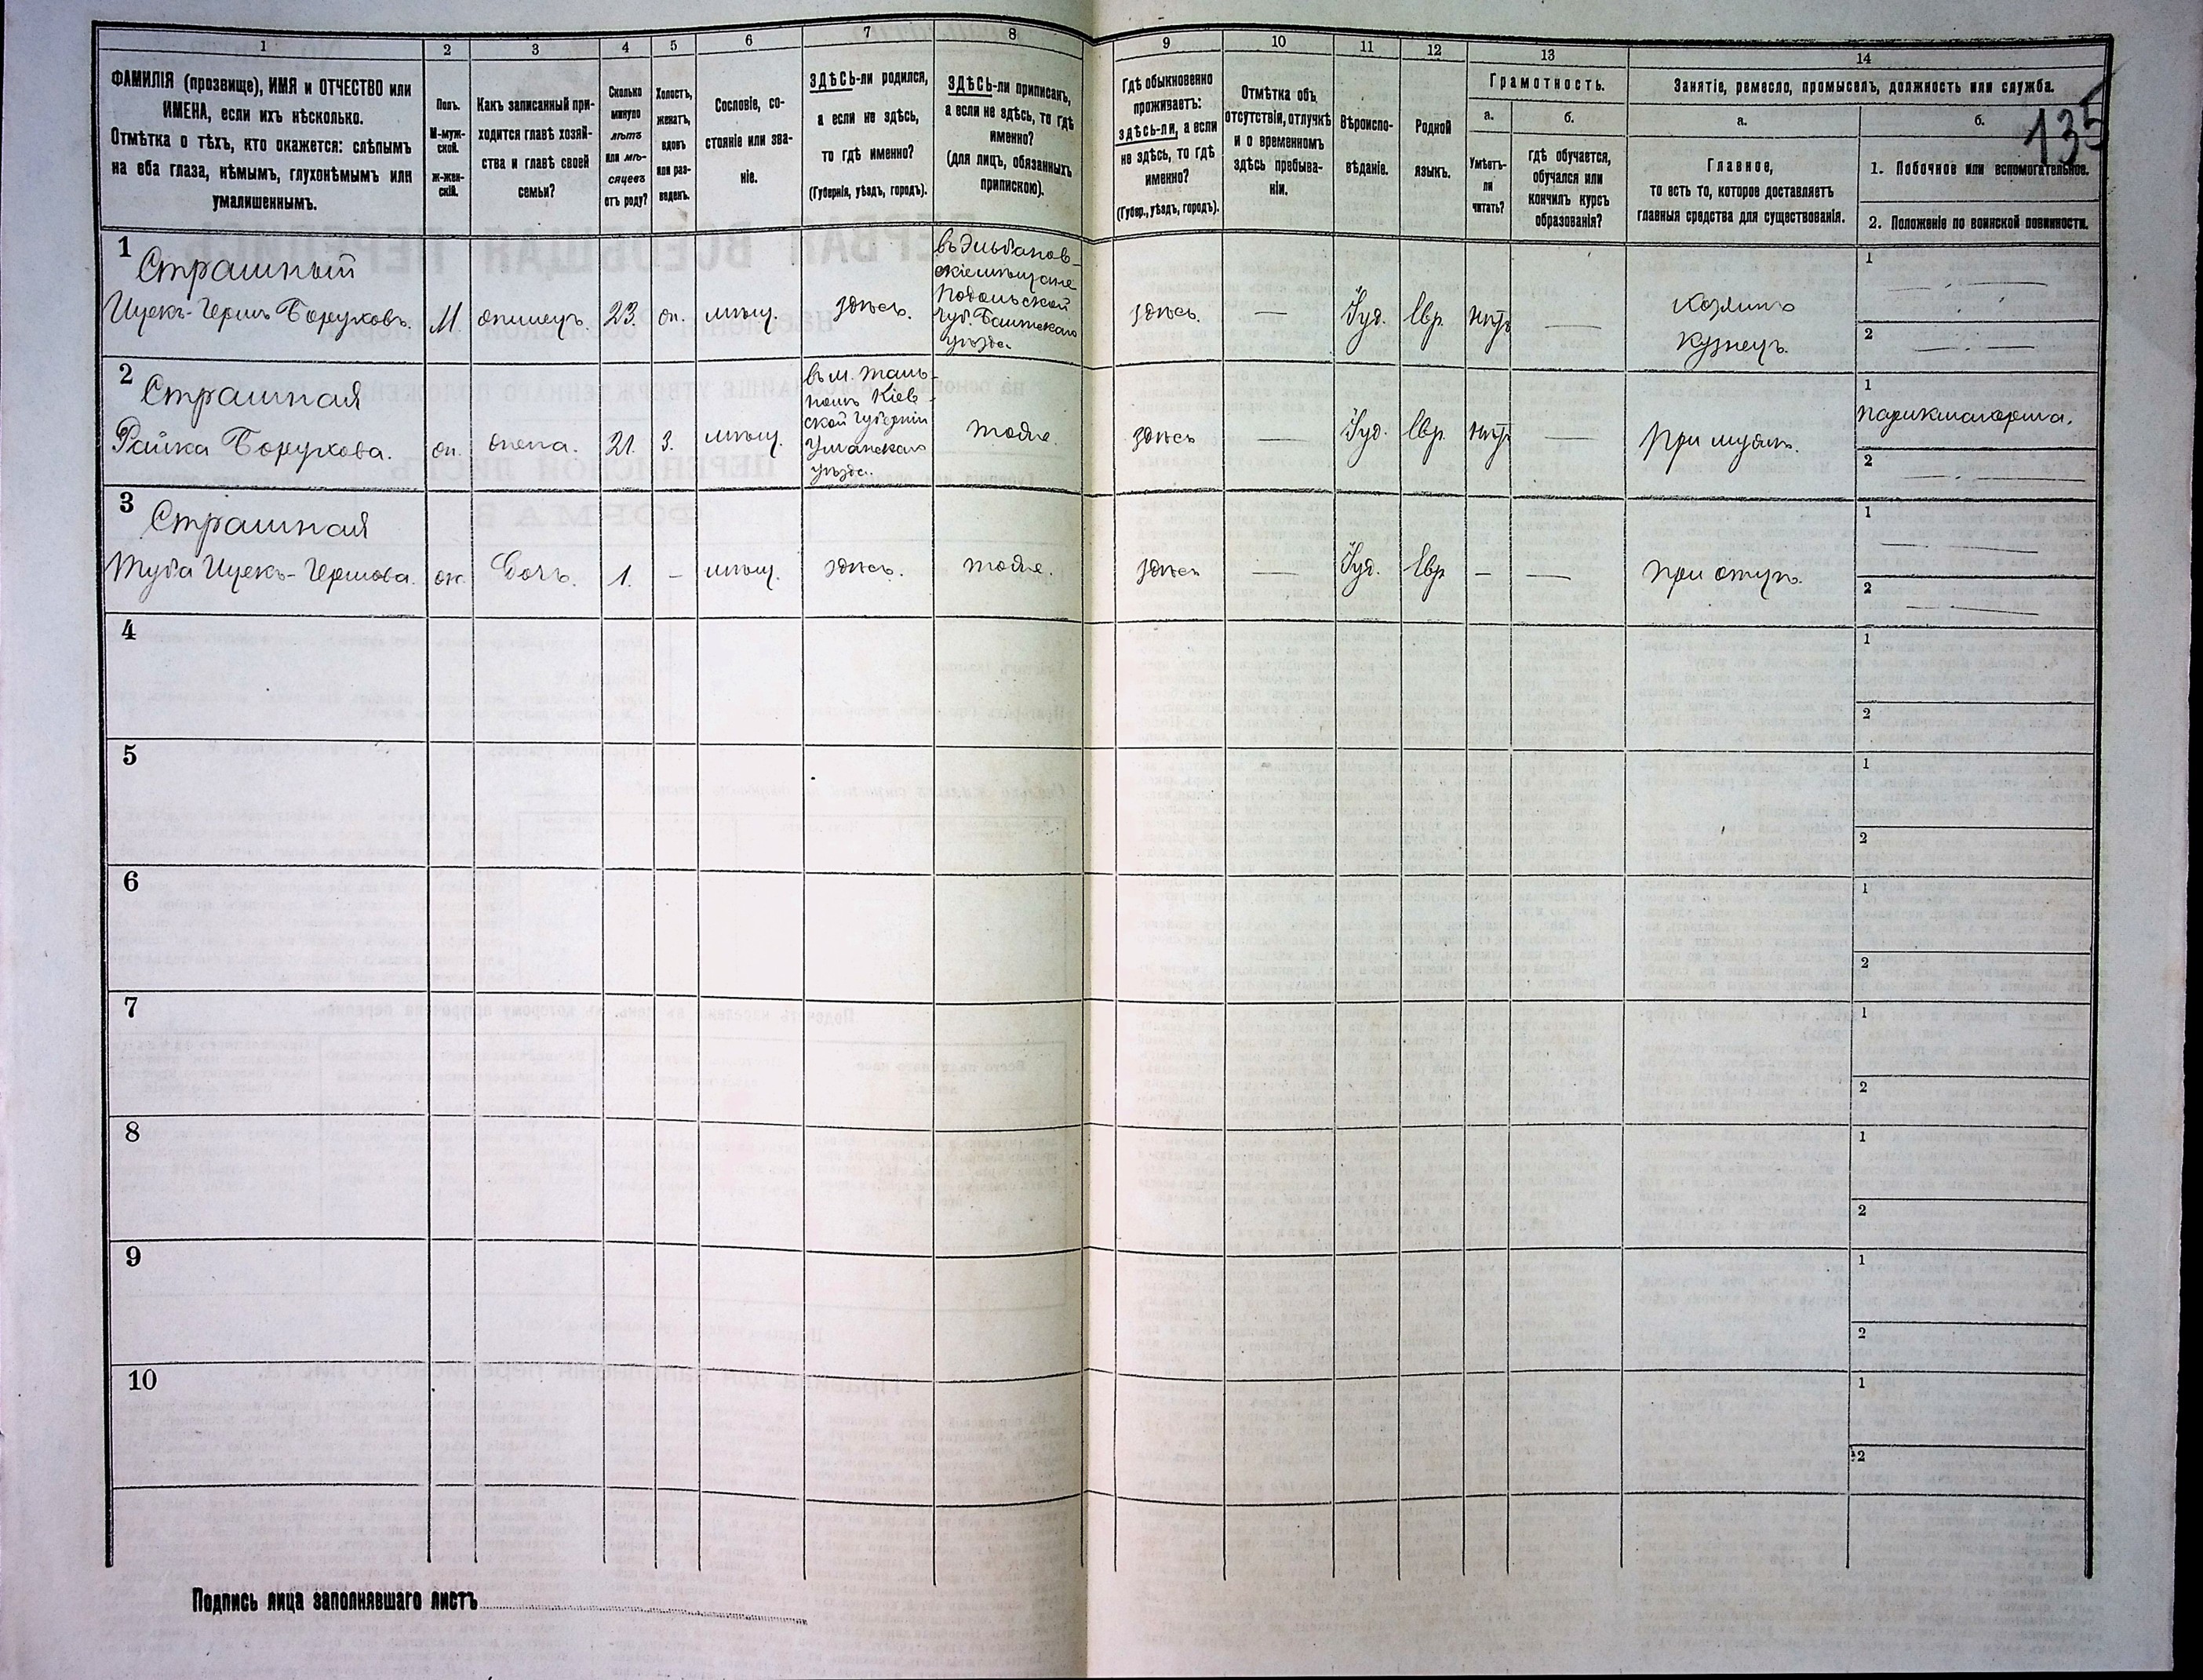 135
1
2
3
4
5
6
7
8
9
10
11
12
13
14
ФАМИЛІЯ (прозвище), ИМЯ и ОТЧЕСТВО или
ИМЕНА, если ихъ нѣсколько.
Отмѣтка о тѣхъ, кто окажется: слѣпымъ
на оба глаза, нѣмымъ, глухонѣмымъ или
умалишеннымъ.
Полъ.
М-муж-
ской.
ж-жен-
скій.
Какъ записанный при-
ходится главѣ хозяй-
ства и главѣ своей
семьи?
Сколько
минуло
лѣтъ
или мѣ-
сяцевъ
отъ роду?
Холостъ,
женатъ,
вдовъ
или раз-
веденъ.
Сословіе, со-
стояніе или зва-
ніе.
ЗДѢСЬ-ли родился,
а если не здѣсь,
то гдѣ именно?
(Губернія, уѣздъ, городъ).
ЗДѢСЬ-ли приписанъ,
а если не здѣсь, то гдѣ
именно?
(для лицъ, обязанныхъ
припискою).
Гдѣ обыкновенно
проживаетъ:
здѣсь-ли, а если
не здѣсь, то гдѣ
именно?
(Губер., уѣздъ, городъ).
Отмѣтка объ
отсутствіи, отлучкѣ
и о временномъ
здѣсь пребыва-
ніи.
Вѣроиспо-
вѣданіе.
Родной
языкъ.
Грамотность.
а.
Умѣетъ-
ли
читать?
б.
гдѣ обучается,
обучался или
кончилъ курсъ
образованія?
Занятіе, ремесло, промыселъ, должность или служба.
а.
Главное,
то есть то, которое доставляетъ
главныя средства для существованія.
б.
1. Побочное или вспомогательное.
2. Положеніе по воинской повинности.
1
Страшный
Ицекъ-Гершъ Боруховъ.
М.
23.
мѣщ.
здѣсь.
Подольской
губ. Балтскаго
уѣзда
здѣсь.
—
Іуд.
Евр.
нѣтъ
—
хозяинъ
кузнецъ.
1 —
2 —
2
Страшная
Райка Борухова.
ж.
жена.
21.
З.
мѣщ.
въ м. Таль-
номъ Кіев-
ской губерніи
Уманскаго
уѣзда.
тоже.
здѣсь
—
Іуд.
Евр.
нѣтъ
—
при мужѣ.
1
парикмахерша.
2 —
3
Страшная
Туба Ицекъ-Гершова.
ж.
Дочь.
1.
-
мѣщ.
здѣсь.
тоже.
здѣсь
—
Іуд.
Евр.
-
—
при отцѣ.
1 —
2 —
4
1
2
5
1
2
6
1
2
7
1
2
8
1
2
9
1
2
10
1
2
Подпись лица заполнявшаго листъ